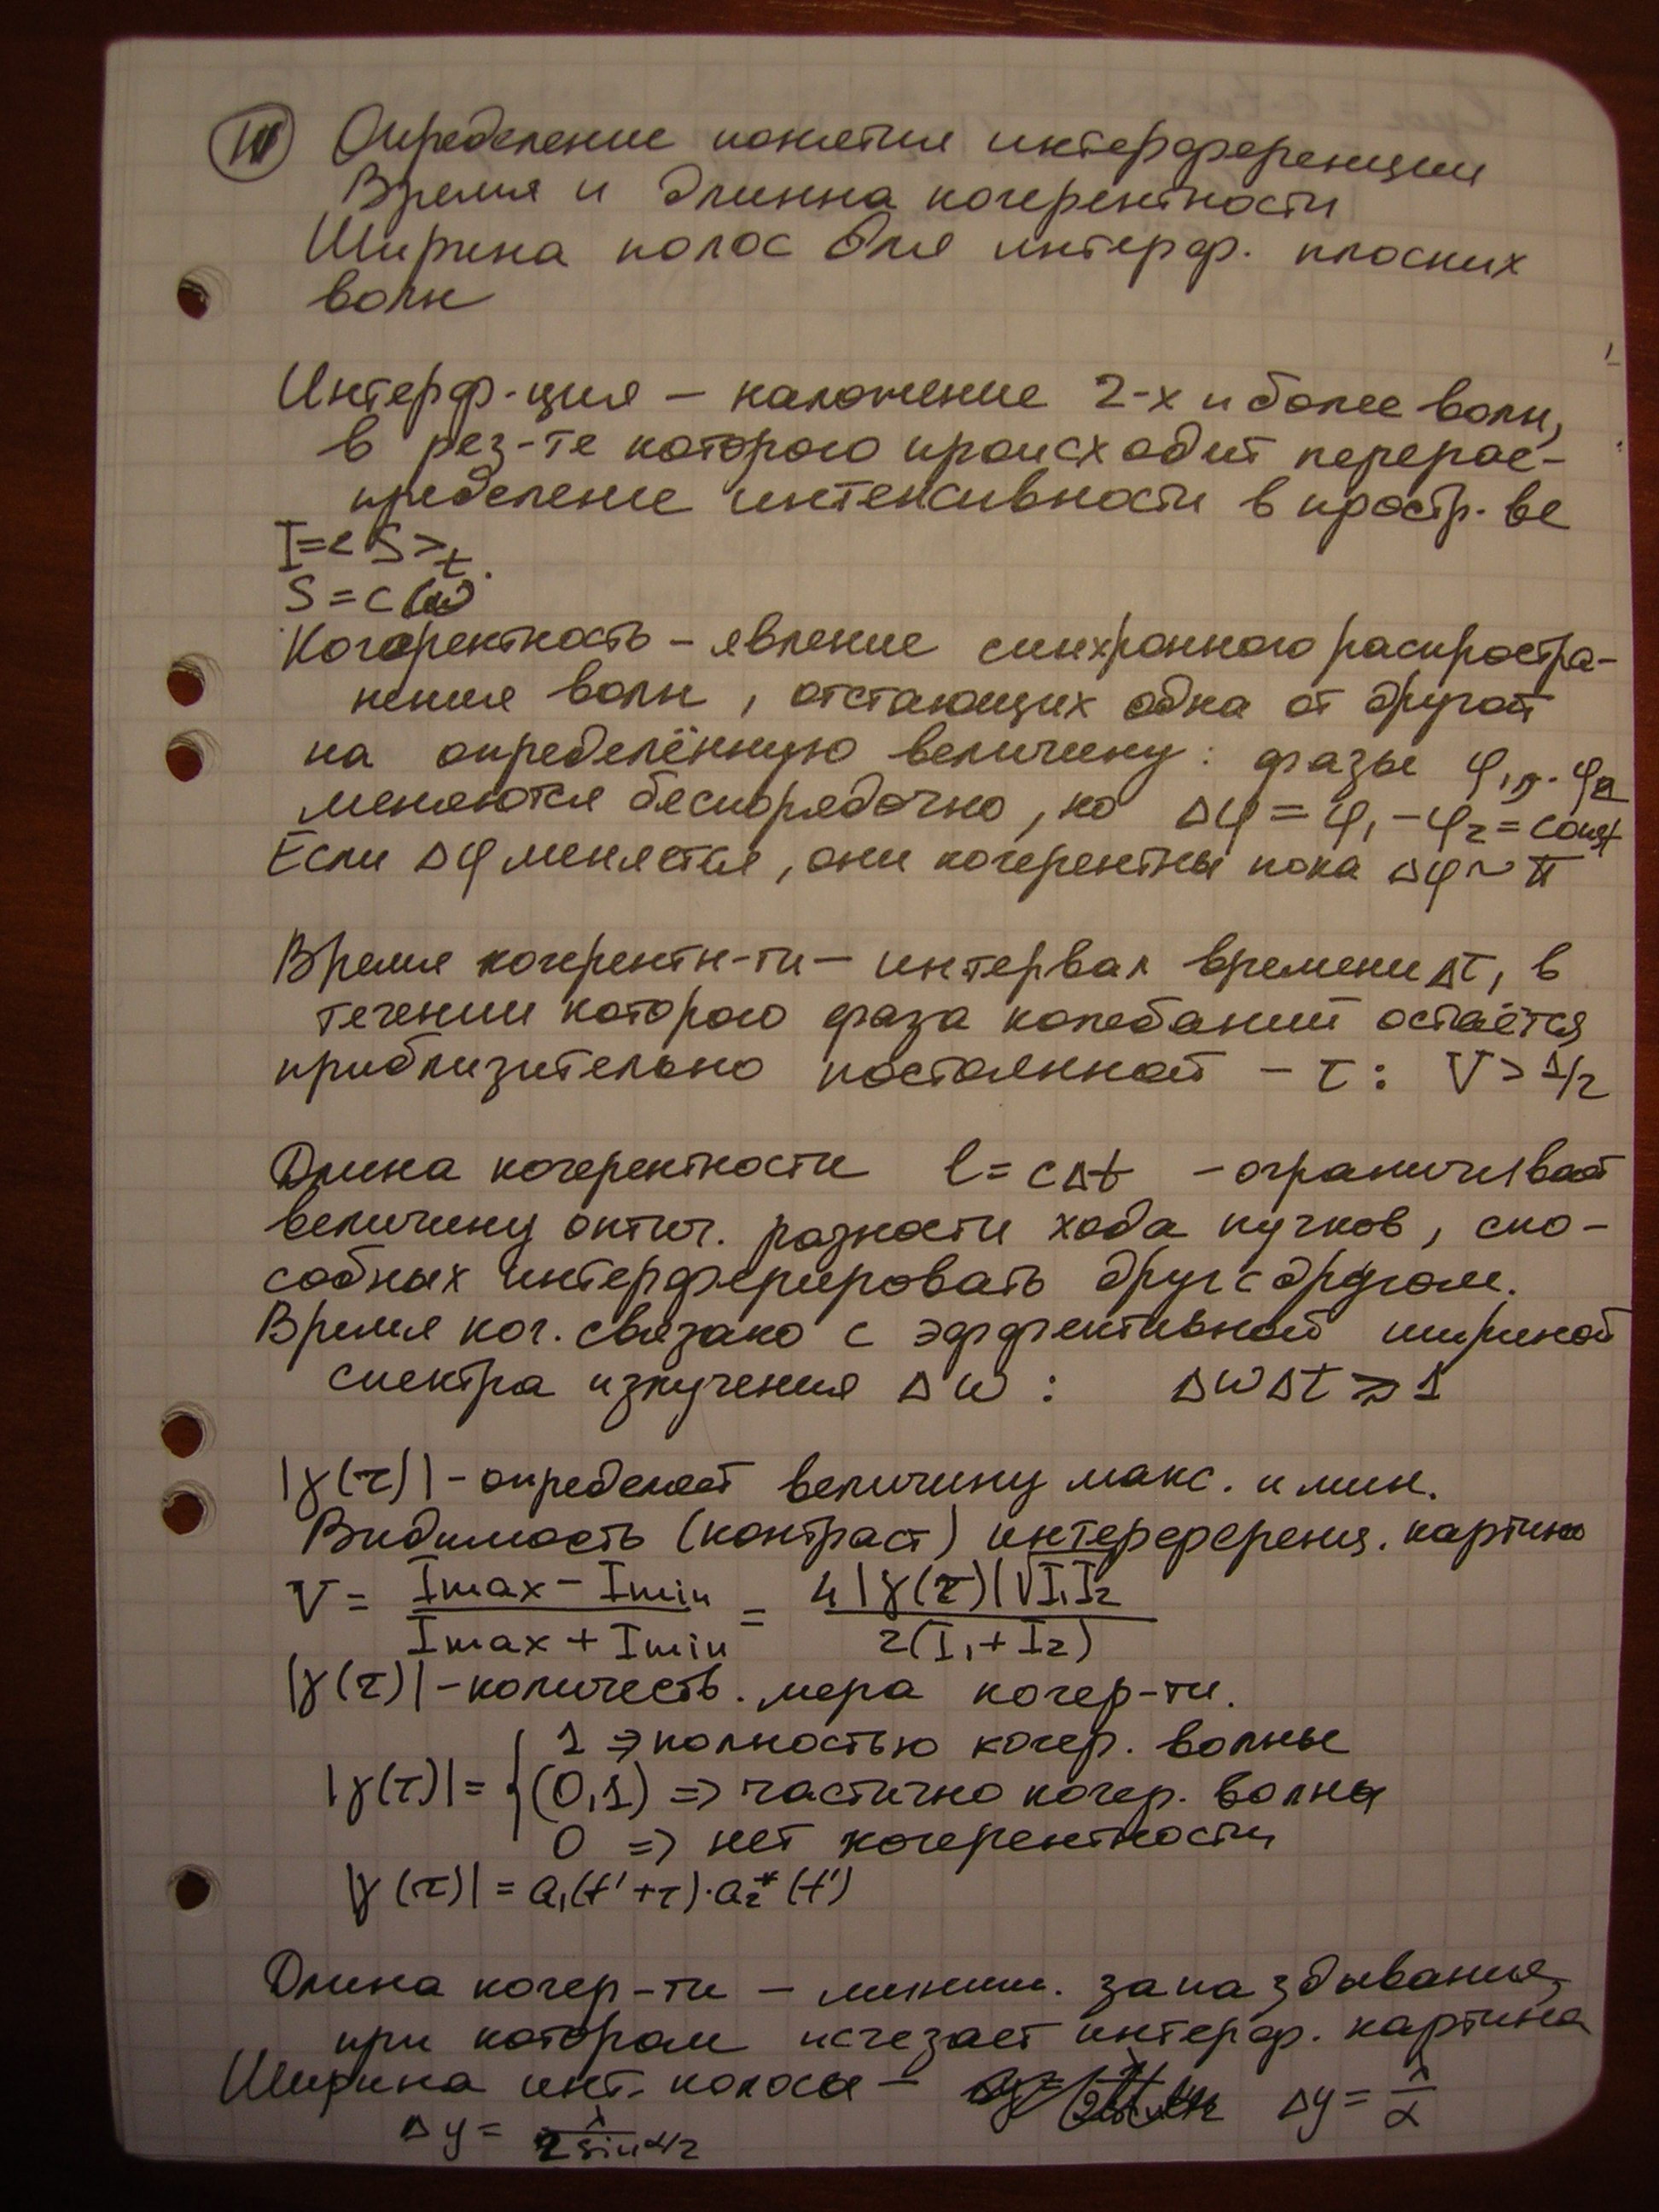 Определение понятия интерференции
Время и длинна когерентности
Ширина полос для интерф. плоских
волн
Интерф-ция – наложение 2-х и более волн,
в рез-те которого происходит перерас-
пределение интенсивности в простр-ве
I=<S>t.
S=c
Когерентность – явление синхронного распростра-
нения волн, отстающих одна от другой
на определённую величину: фазы φ1, φ2
меняются беспорядочно, но Δφ = φ1 – φ2 = const
Если Δφ меняется, они когерентны пока Δφ ~ π
Время когерентн-ти – интервал времени Δt, в
течении которого фаза колебаний остаётся
приблизительно постоянной – τ: V > 1/2
Длина когерентности l = cΔt – ограничивает
величину оптич. разности хода пучков, спо-
собных интерферировать друг с другом.
Время ког. связано с эффективной шириной
спектра излучения Δω: ΔωΔt ⩾ 1
|γ(τ)| – определяет величину макс. и мин.
Видимость (контраст) интерференц. картины
V = (Imax – Imin)/(Imax + Imin) = 4|γ(τ)|√I1I2/2(I1+I2)
|γ(τ)| – количеств. мера когер-ти.
1 => полностью когер. волны
|γ(τ)| = { (0,1) => частично когер. волны
0 => нет когерентности
|γ(τ)| = a1(t'+τ)·a2*(t')
Длина когер-ти – миним. запаздывание,
при котором исчезает интерф. картина
Ширина инт. полосы – Δy = λ/α
Δy = λ/2sinα/2